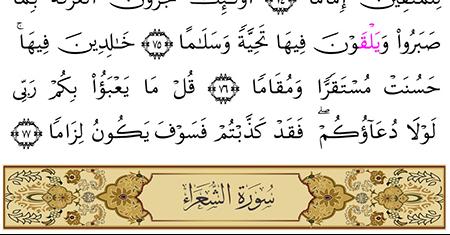 لِلْمُتَّقِينَ إِمَامًا ﴿٧٤﴾ أُوْلَٰٓئِكَ يُجْزَوْنَ الْغُرْفَةَ بِمَا
صَبَرُواْ وَيَلْقَوْنَ فِيهَا تَحِيَّةً وَسَلَٰمًا ﴿٧٥﴾ خَٰلِدِينَ فِيهَا ۚ
حَسُنَتْ مُسْتَقَرًّا وَمُقَامًا ﴿٧٦﴾ قُلْ مَا يَعْبَؤُاْ بِكُمْ رَبِّى
لَوْلَا دُعَآؤُكُمْ ۖ فَقَدْ كَذَّبْتُمْ فَسَوْفَ يَكُونُ لِزَامًا ﴿٧٧﴾
سُورَةُ الشُّعَرَاء